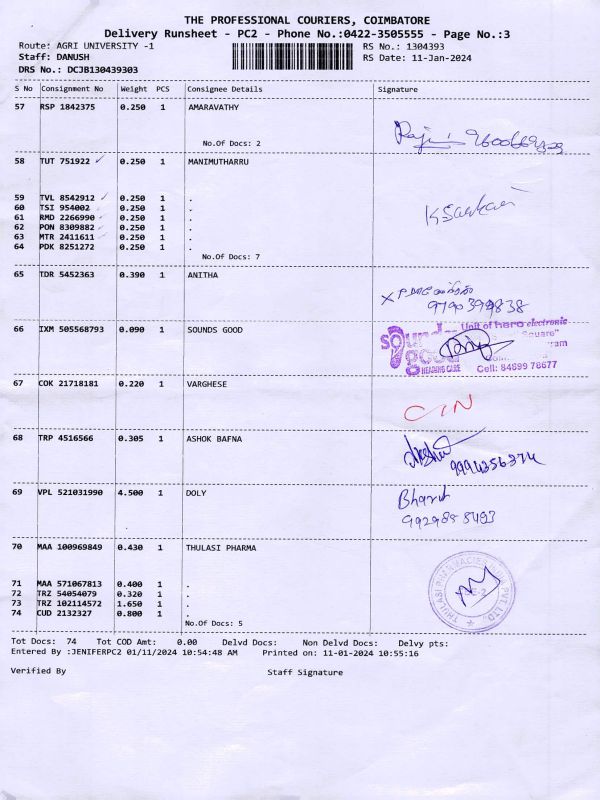 THE PROFESSIONAL COURIERS, COIMBATORE
Delivery Runsheet - PC2 - Phone No.:0422-3505555 - Page No.:3
Route: AGRI UNIVERSITY -1 RS No.: 1304393
Staff: DANUSH RS Date: 11-Jan-2024
DRS No.: DCJB130439303
S No Consignment No Weight PCS Consignee Details Signature
57 RSP 1842375 0.250 1 AMARAVATHY
No.Of Docs: 2
58 TUT 751922 0.250 1 MANIMUTHARRU
59 TVL 8542912 0.250 1 .
60 TSI 954002 0.250 1 .
61 RMD 2266990 0.250 1 .
62 PON 8309882 0.250 1 .
63 MTR 2411611 0.250 1 .
64 PDK 8251272 0.250 1 .
No.Of Docs: 7
65 TDR 5452363 0.390 1 ANITHA
9790399838
66 IXM 505568793 0.090 1 SOUNDS GOOD
Unit of hero electronic
Square"
good
HEARING CARE Cell: 84899 78677
67 COK 21718181 0.220 1 VARGHESE
68 TRP 4516566 0.305 1 ASHOK BAFNA
9994356374
69 VPL 521031990 4.500 1 DOLY
Bharat
9929858493
70 MAA 100969849 0.430 1 THULASI PHARMA
71 MAA 571067813 0.400 1 .
72 TRZ 54054079 0.320 1 .
73 TRZ 102114572 1.650 1 .
74 CUD 2132327 0.800 1 .
No.Of Docs: 5
THULASI PHARMACIES INDIA PVT. LTD.,
Tot Docs: 74 Tot COD Amt: 0.00 Delvd Docs: Non Delvd Docs: Delvy pts:
Entered By :JENIFERPC2 01/11/2024 10:54:48 AM Printed on: 11-01-2024 10:55:16
Verified By Staff Signature